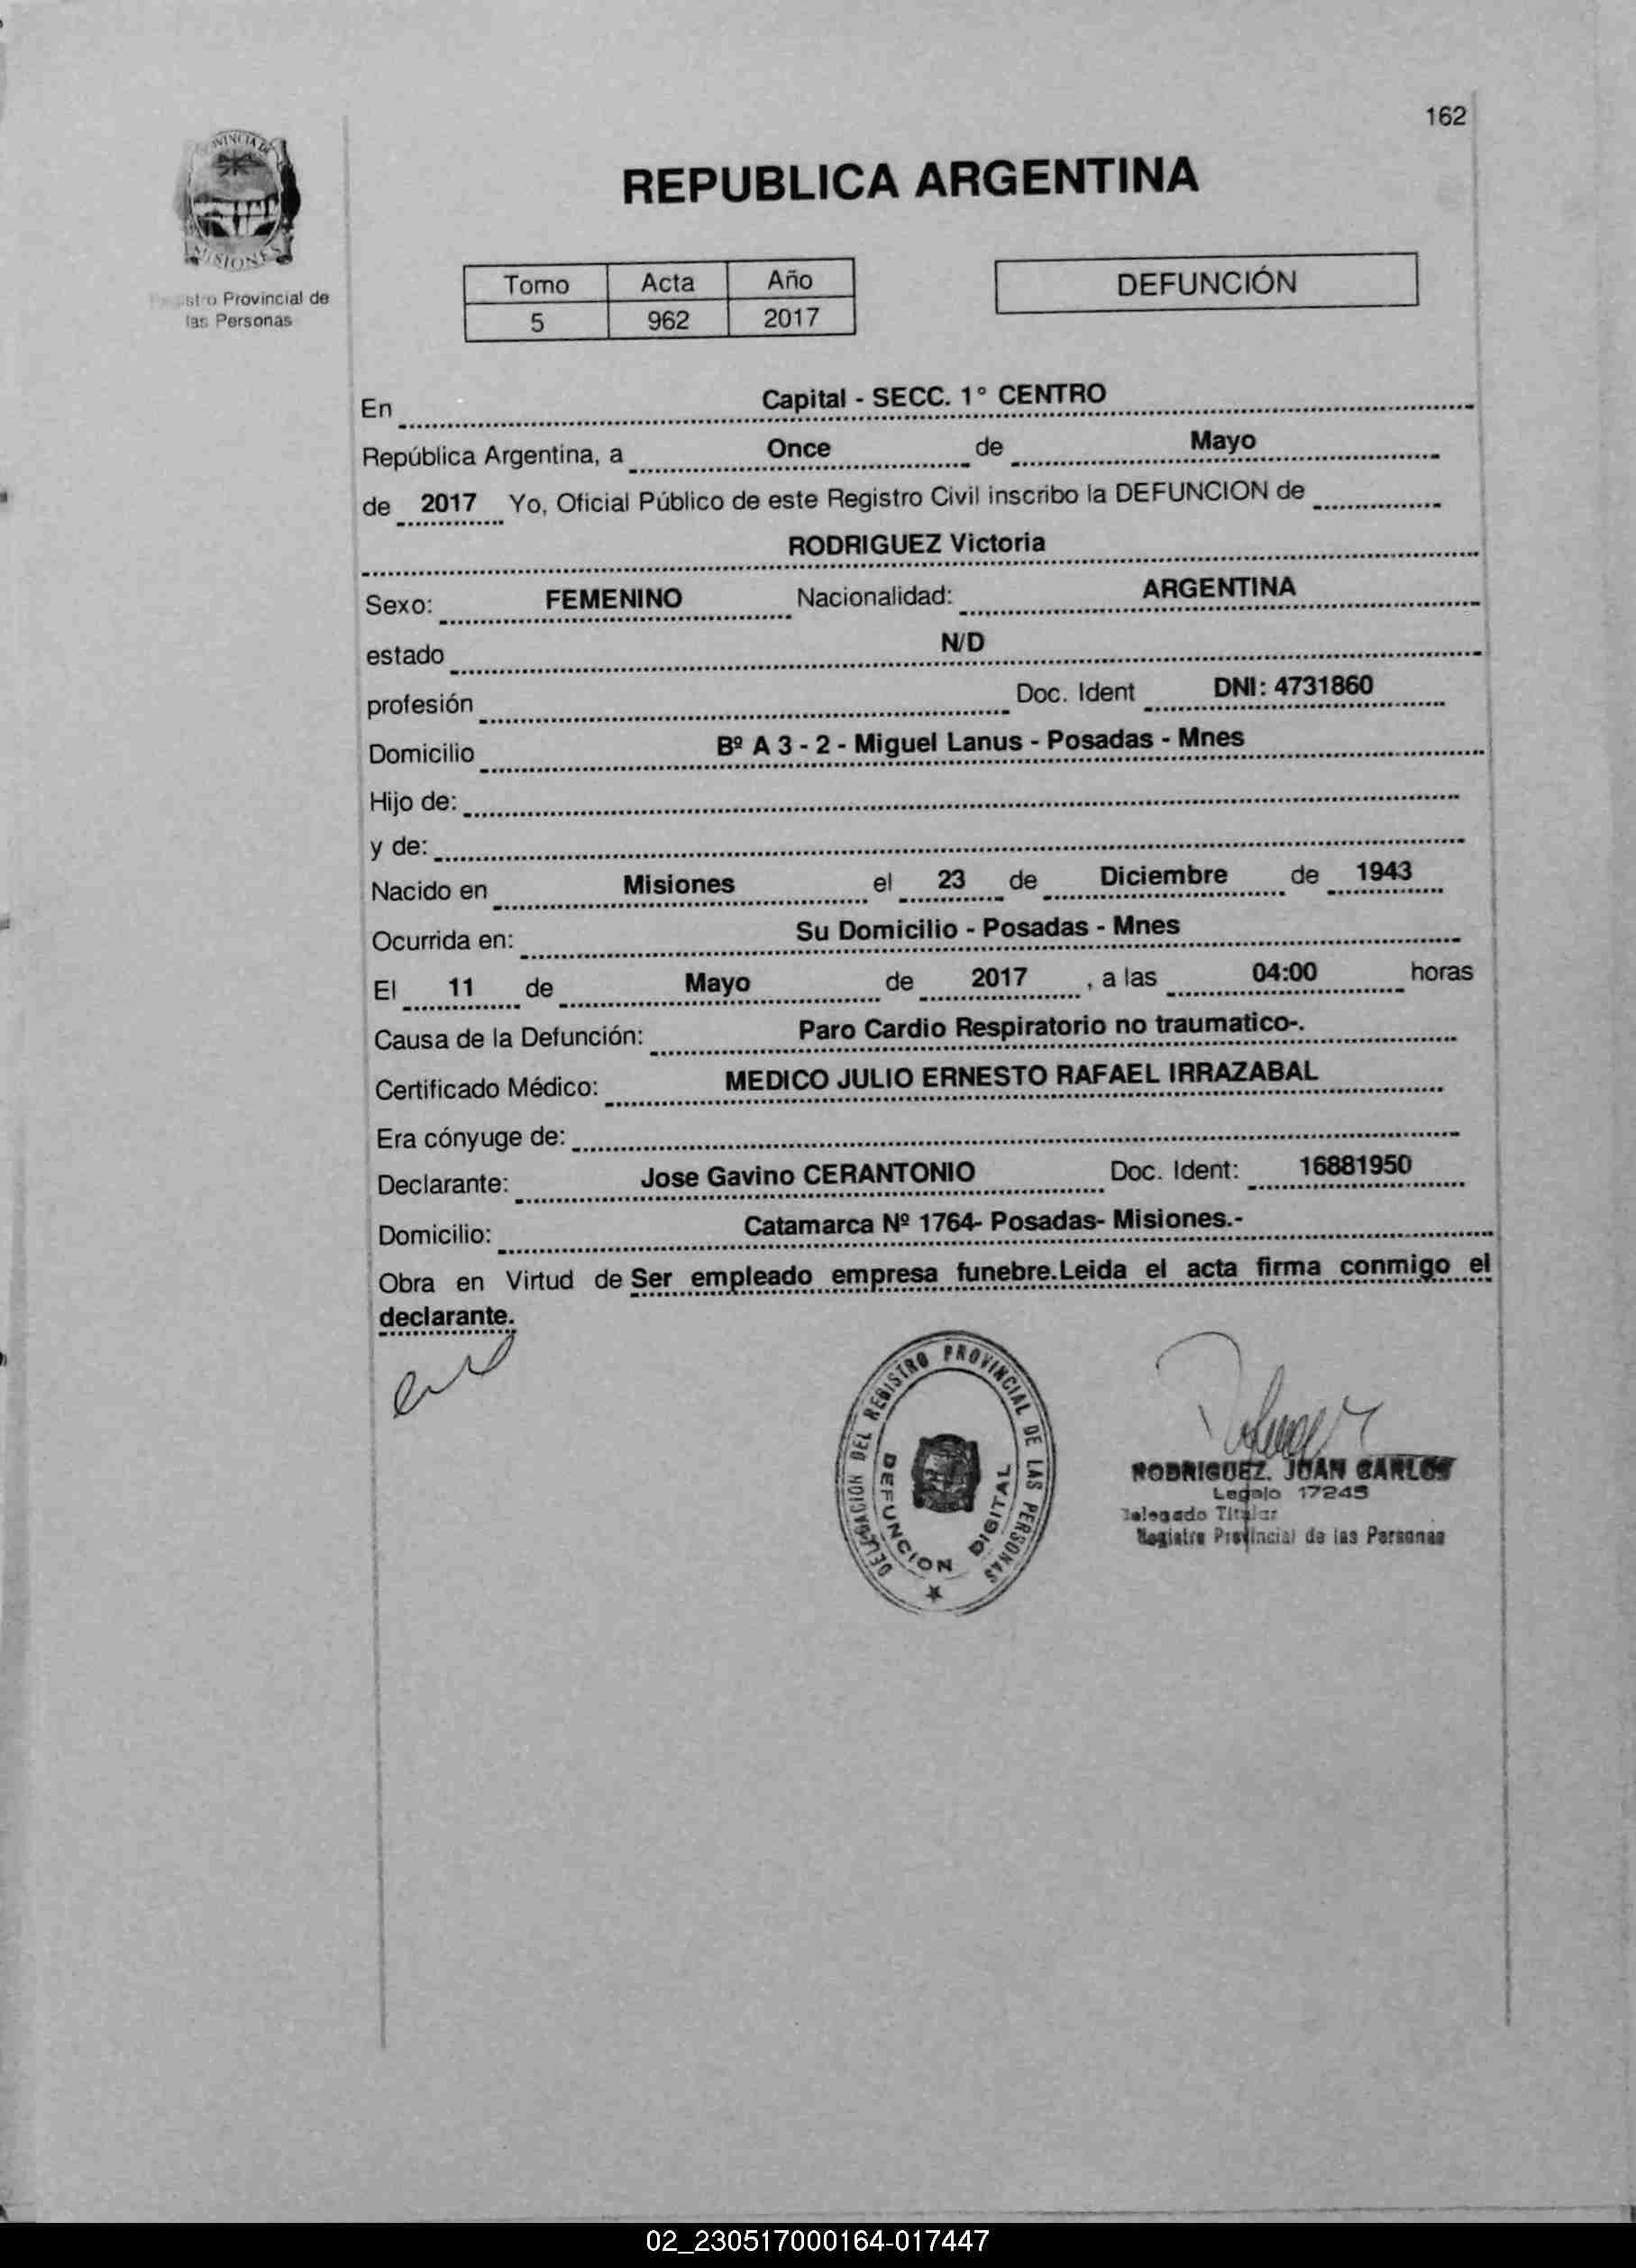 162
PROVINCIA DE
MISIONES
Registro Provincial de
las Personas
REPUBLICA ARGENTINA
Tomo Acta Año
5 962 2017
DEFUNCIÓN
En Capital - SECC. 1° CENTRO
República Argentina, a Once de Mayo
de 2017 Yo, Oficial Público de este Registro Civil inscribo la DEFUNCION de
RODRIGUEZ Victoria
Sexo: FEMENINO Nacionalidad: ARGENTINA
estado N/D
profesión Doc. Ident DNI: 4731860
Domicilio Bº A 3 - 2 - Miguel Lanus - Posadas - Mnes
Hijo de:
y de:
Nacido en Misiones el 23 de Diciembre de 1943
Ocurrida en: Su Domicilio - Posadas - Mnes
El 11 de Mayo de 2017 , a las 04:00 horas
Causa de la Defunción: Paro Cardio Respiratorio no traumatico-.
Certificado Médico: MEDICO JULIO ERNESTO RAFAEL IRRAZABAL
Era cónyuge de:
Declarante: Jose Gavino CERANTONIO Doc. Ident: 16881950
Domicilio: Catamarca Nº 1764- Posadas- Misiones.-
Obra en Virtud de Ser empleado empresa funebre.Leida el acta firma conmigo el
declarante.
DELEGACION DEL REGISTRO PROVINCIAL DE LAS PERSONAS
DEFUNCION DIGITAL
RODRIGUEZ. JUAN CARLOS
Legajo 17245
Delegado Titular
Registro Provincial de las Personas
02_230517000164-017447